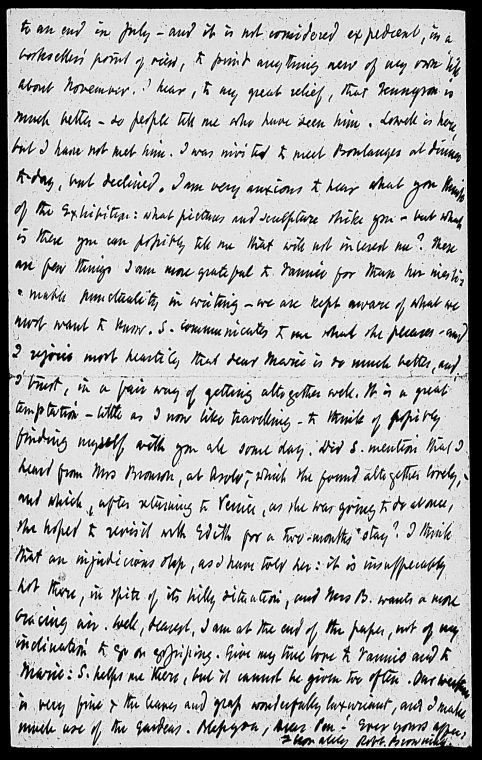 to an end in July - and it is not considered expedient, in a
bookseller's point of view, to print anything new of my own till
about November. I hear, to my great relief, that Tennyson is
much better - so people tell me who have seen him. Lowell is here,
but I have not met him. I was invited to meet Boulanger at dinner
to-day, but declined. I am very anxious to hear what you think
of the Exhibition: what pictures and sculpture strike you - but what
is there you can possibly tell me that will not interest me? There
are few things I am more grateful to Fannie for than her inesti-
-mable punctuality in writing - we are kept aware of what we
most want to know. S. communicates to me what she pleases - and
I rejoice most heartily that dear Marie is so much better, and,
I trust, in a fair way of getting altogether well. It is a great
temptation - little as I now like travelling - to think of possibly
finding myself with you all some day. Did S. mention that I
heard from Mrs Bronson, at Asolo, which she found altogether lovely, -
and which, after returning to Venice, as she was going to do at once,
she hoped to revisit with Edith for a two-months' stay? I think
that an injudicious step, as I have told her: it is insufferably
hot there, in spite of its hilly situation, and Mrs B. wants a more
bracing air. Well, dearest, I am at the end of the paper, not of my
inclination to go on gossiping. Give my true love to Fannie and to
Marie: S. helps me there, but it cannot be given too often. Our weather
is very fine & the leaves and grass wonderfully luxuriant, and I make
much use of the Gardens. Bless you, dear Pen! Ever yours affec-
tionately Robt. Browning.